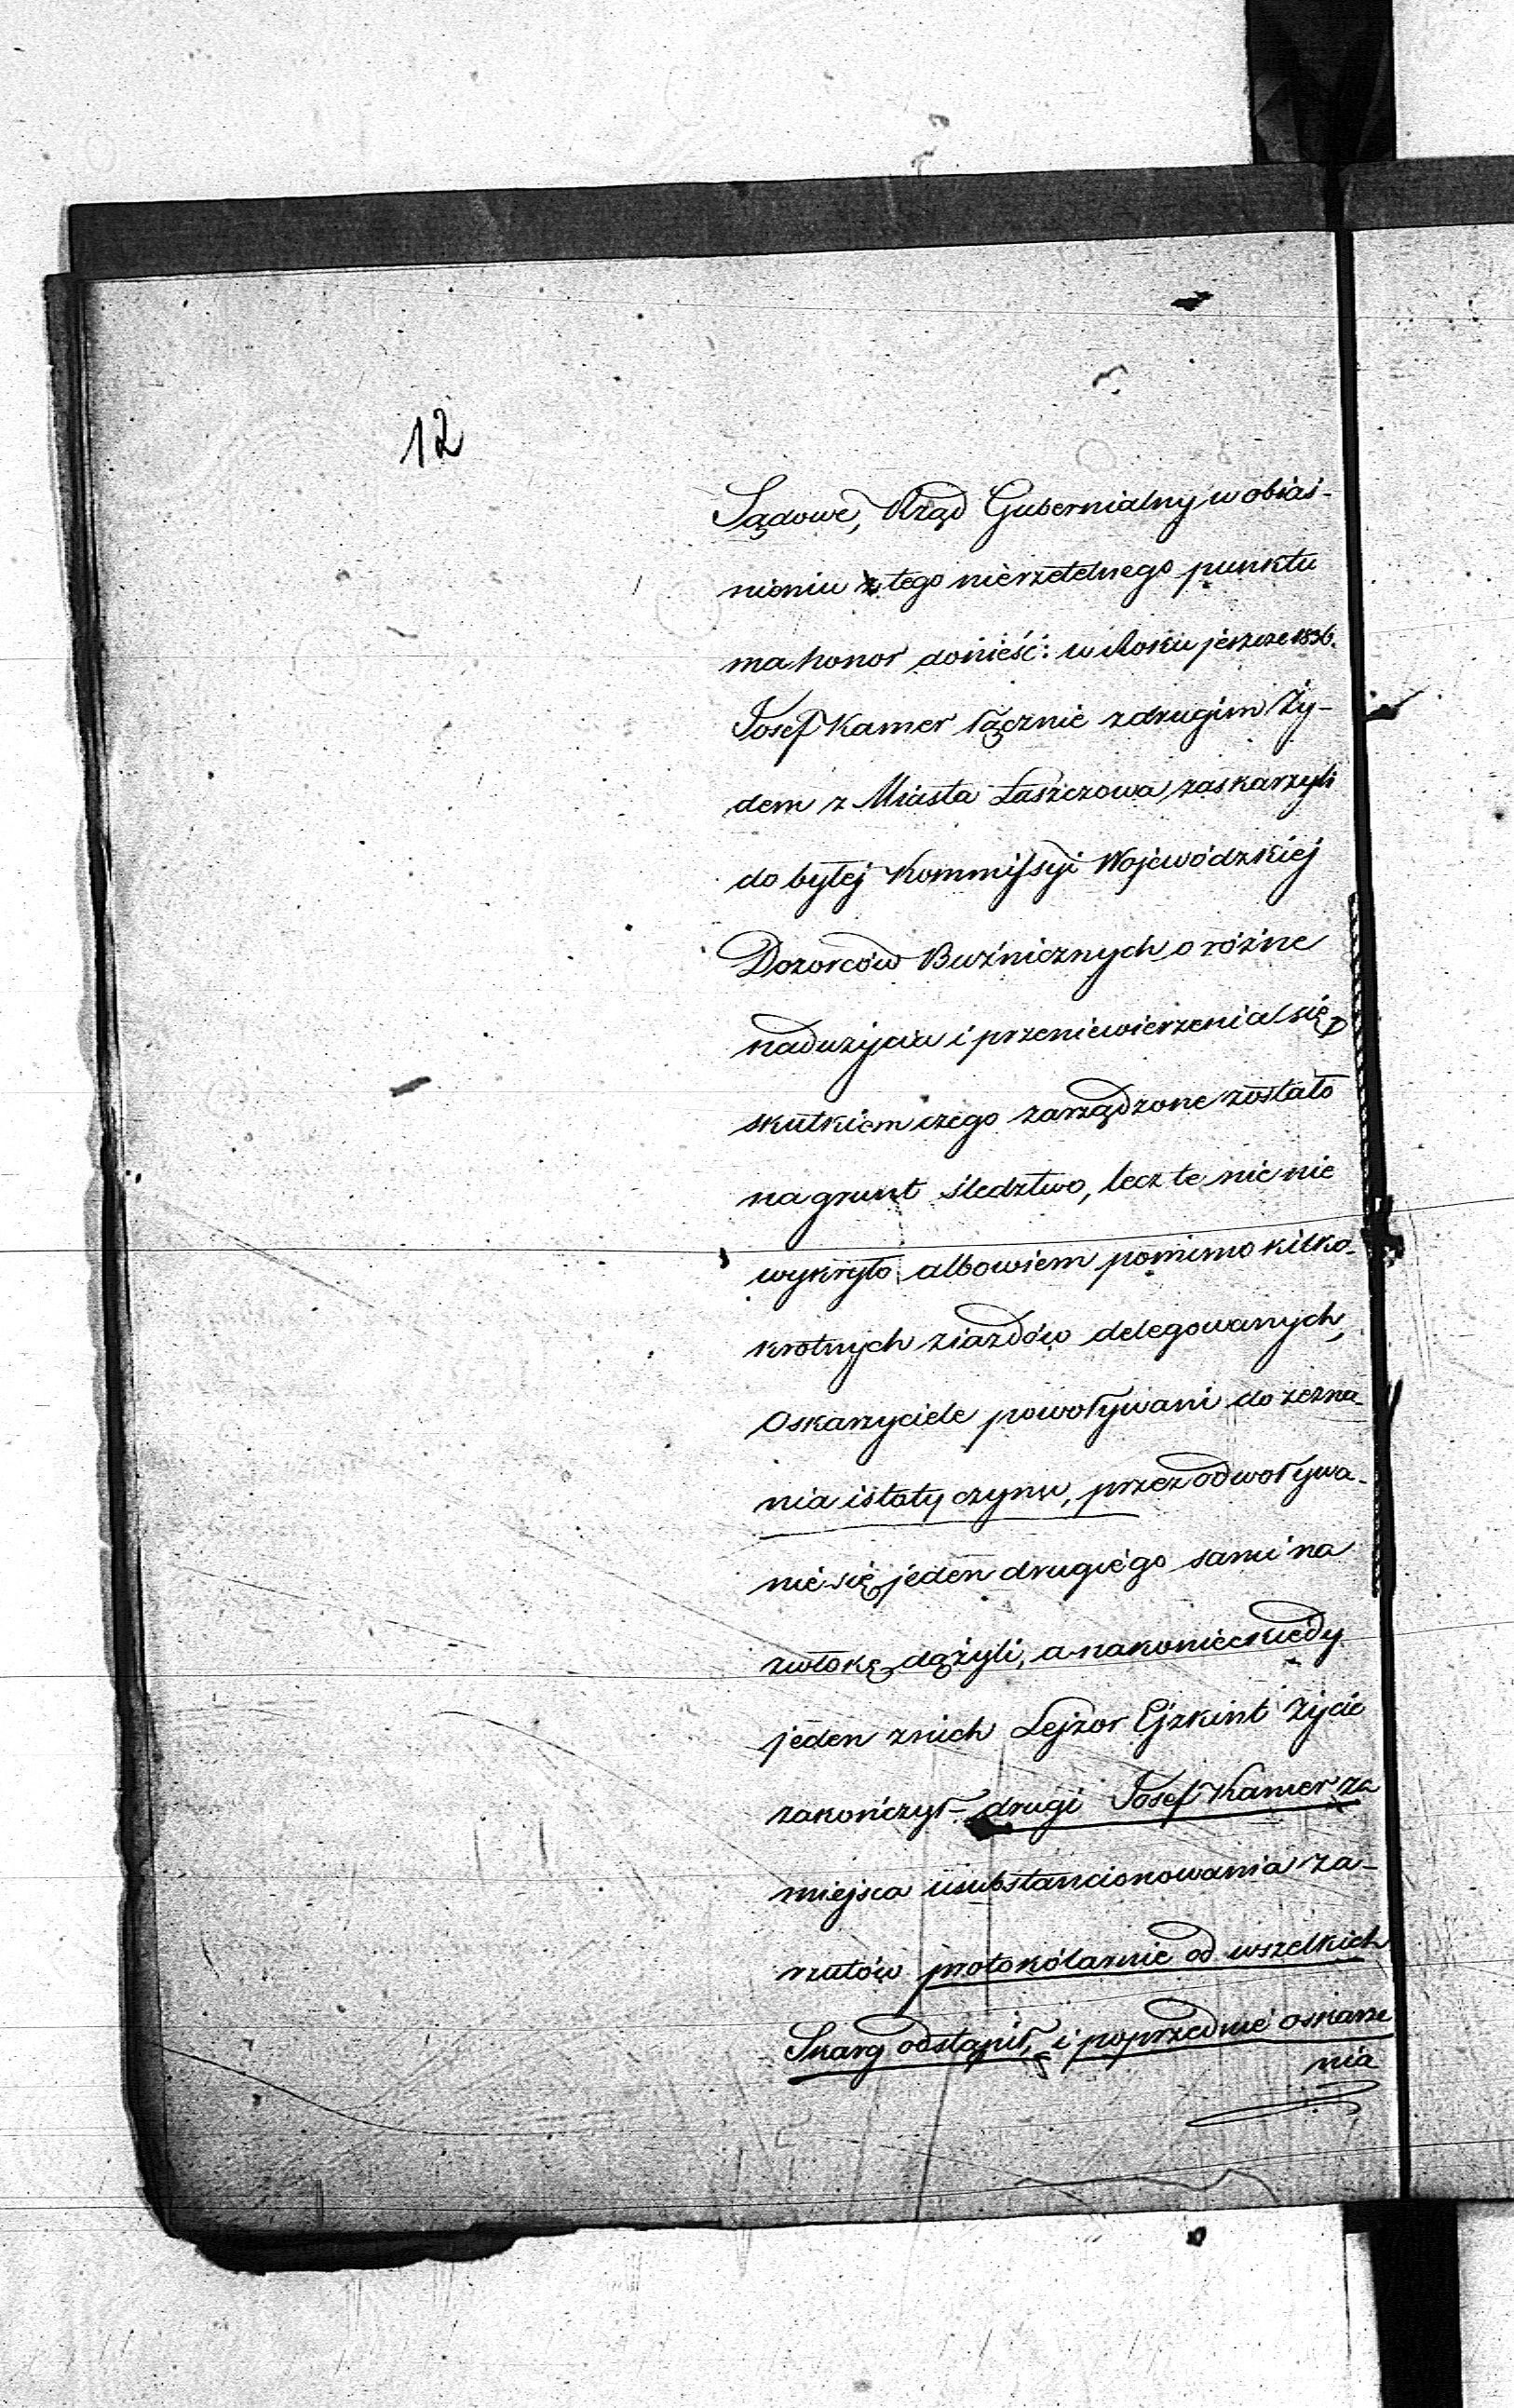 12
Sądowe, Rząd Gubernialny w obiaś-
nieniu z tego nierzetelnego punktu
ma honor donieść: w Roku jeszcze 1836.
Josef Kamer łącznie z drugim Ży-
dem z Miasta Łaszczowa zaskarzyli
do byłej Kommissyi Wojewódzkiej
Dozorców Buźnicznych o różne
nadużycia i przeniewierzenia się,
skutkiem czego zarządzone zostało
na grunt śledztwo, lecz te nic nie
wykryło albowiem pomimo kilko-
krotnych ziazdów delegowanych,
Oskarzyciele powoływani do zezna-
nia istoty czynu, przez odwoływa-
nie się jeden drugiego sami na
zwłokę dążyli, a nakoniec kiedy
jeden z nich Lejzor Ejzkint życie
zakończył – drugi Josef Kamer za
miejsca usubstancionowania za-
rzutów protokólarnie od wszelkich
Skarg odstąpił, i poprzednie oskarże
nia